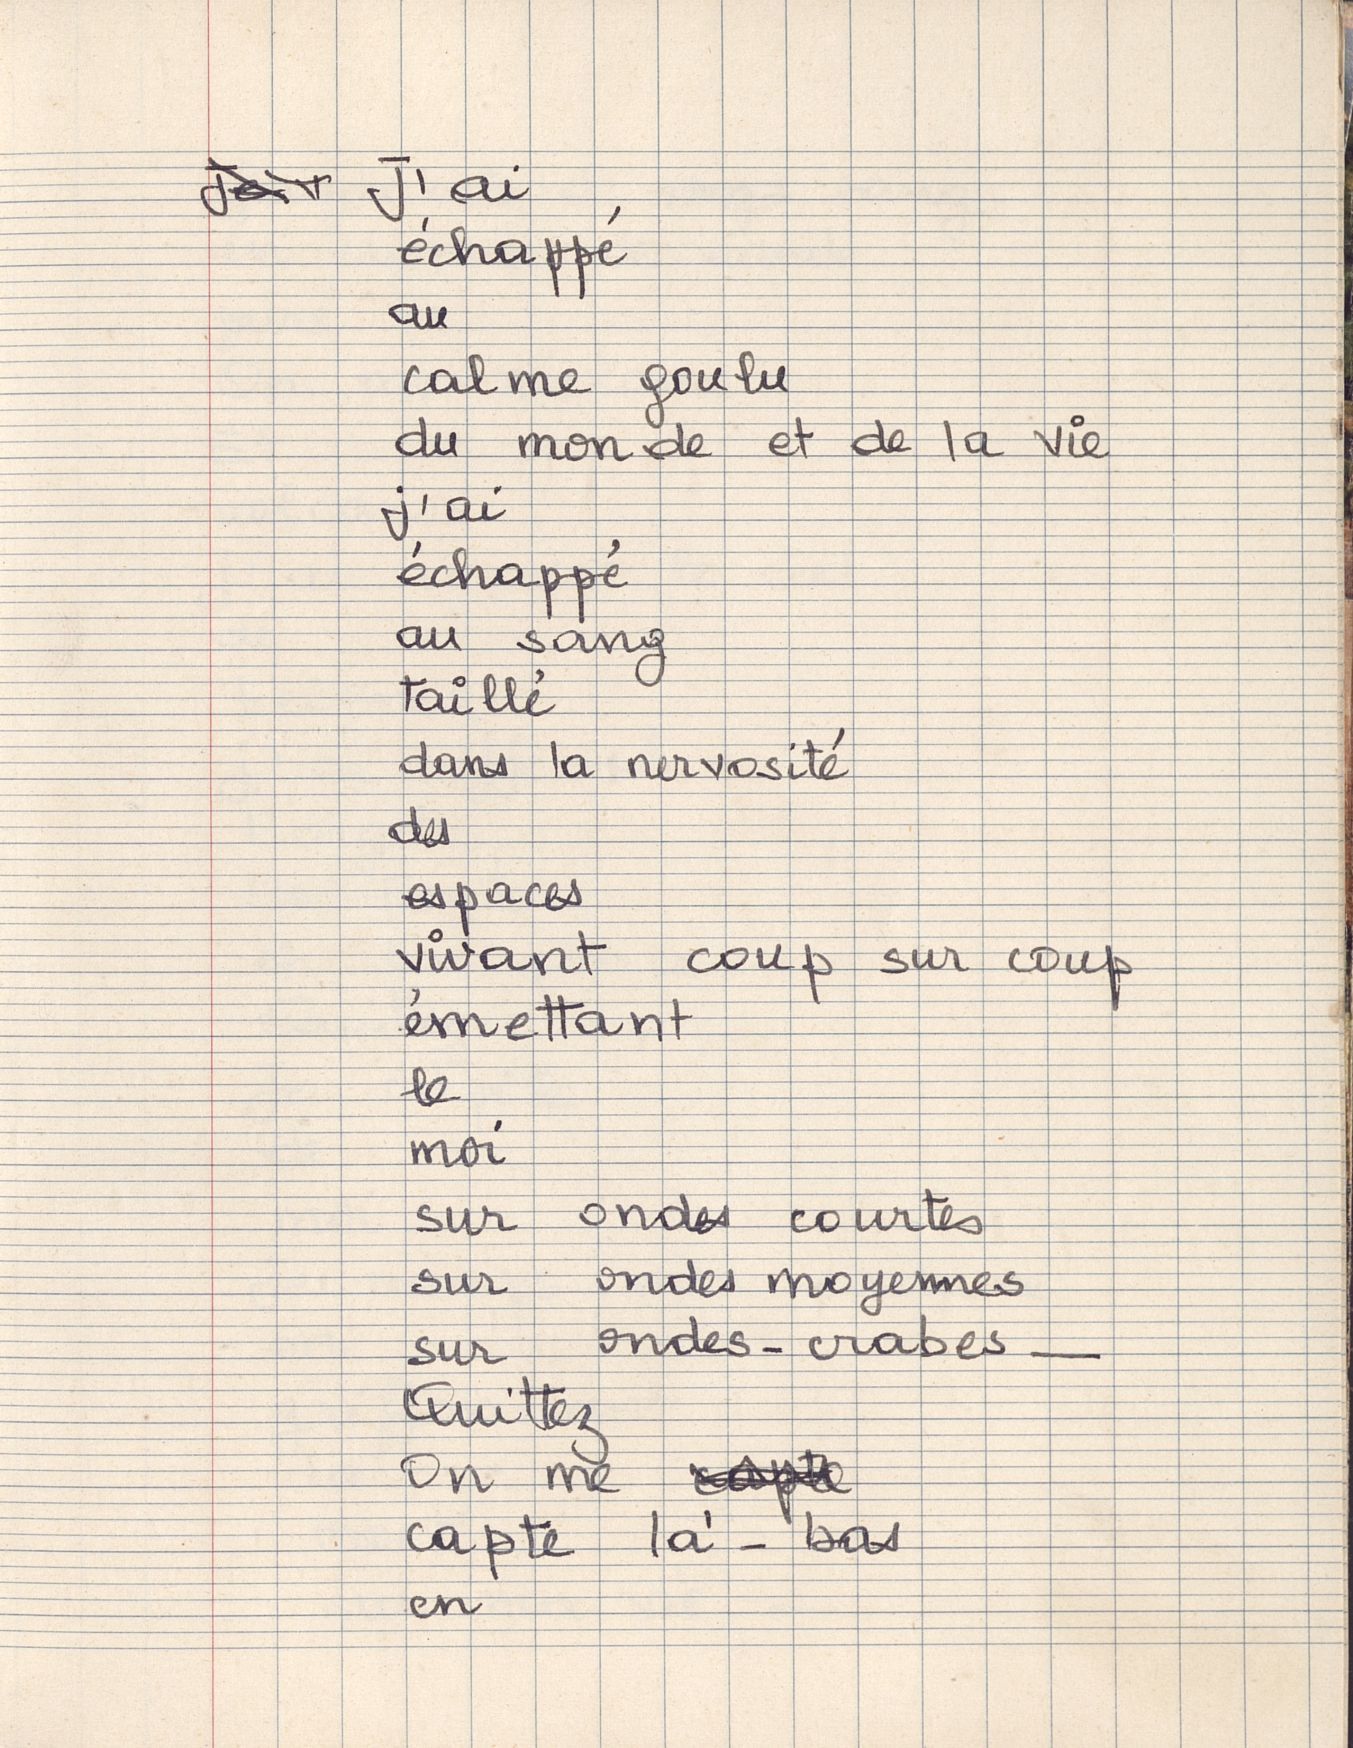 J'ai
échappé
au
calme goulu
du monde et de la vie
j'ai
échappé
au sang
taillé
dans la nervosité
des
espaces
vivant coup sur coup
émettant
le
moi
sur ondes courtes
sur ondes moyennes
sur ondes-crabes —
Quittez
On me capte
capte là-bas
en